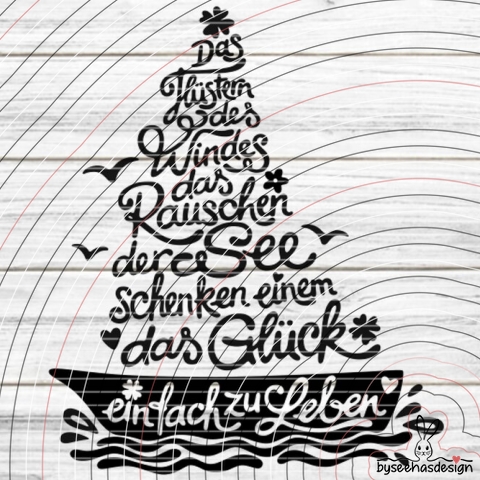 Das
Flüstern
des
Windes
das
Rauschen
der See
schenken einem
das Glück
einfach zu Leben
byseehasdesign